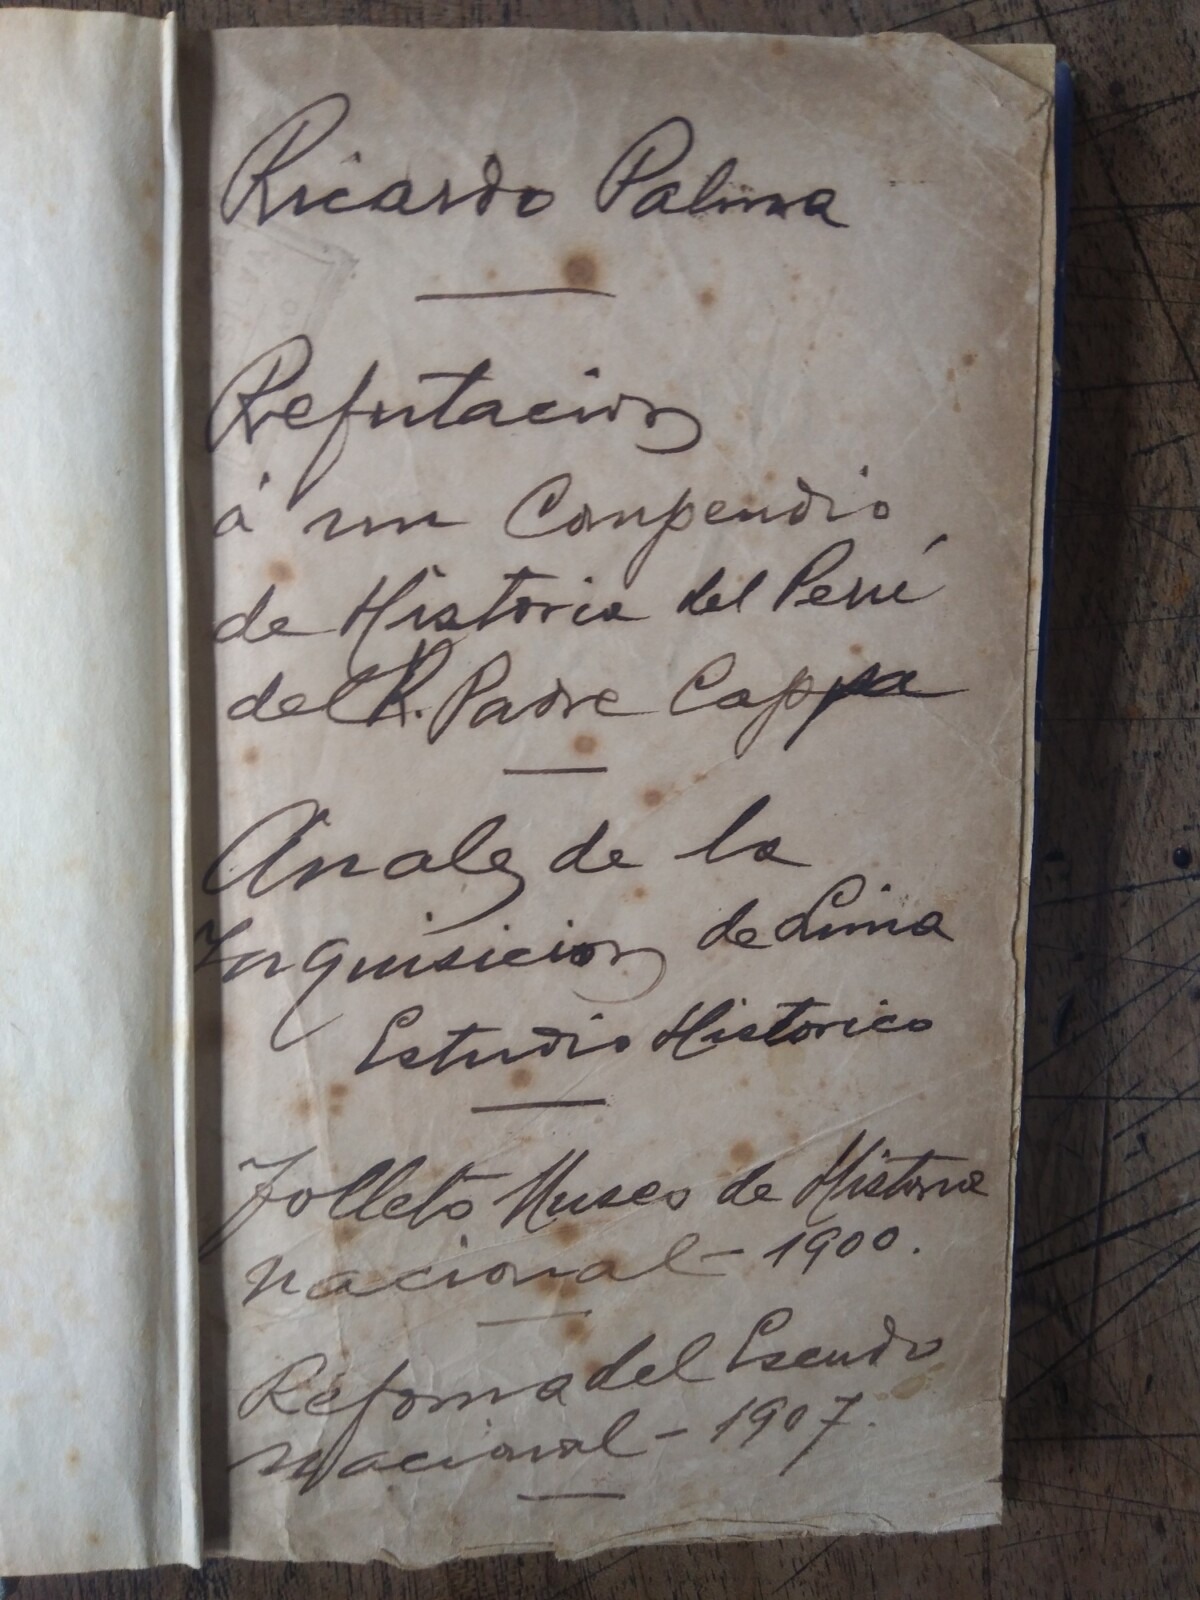 Ricardo Palma
Refutacion
á un Compendio
de Historia del Perú
del R. Padre Cappa
Anales de la
Inquisicion de Lima
Estudio Historico
Folleto Museo de Historia
Nacional - 1900.
Reforma del Escudo
Nacional - 1907.